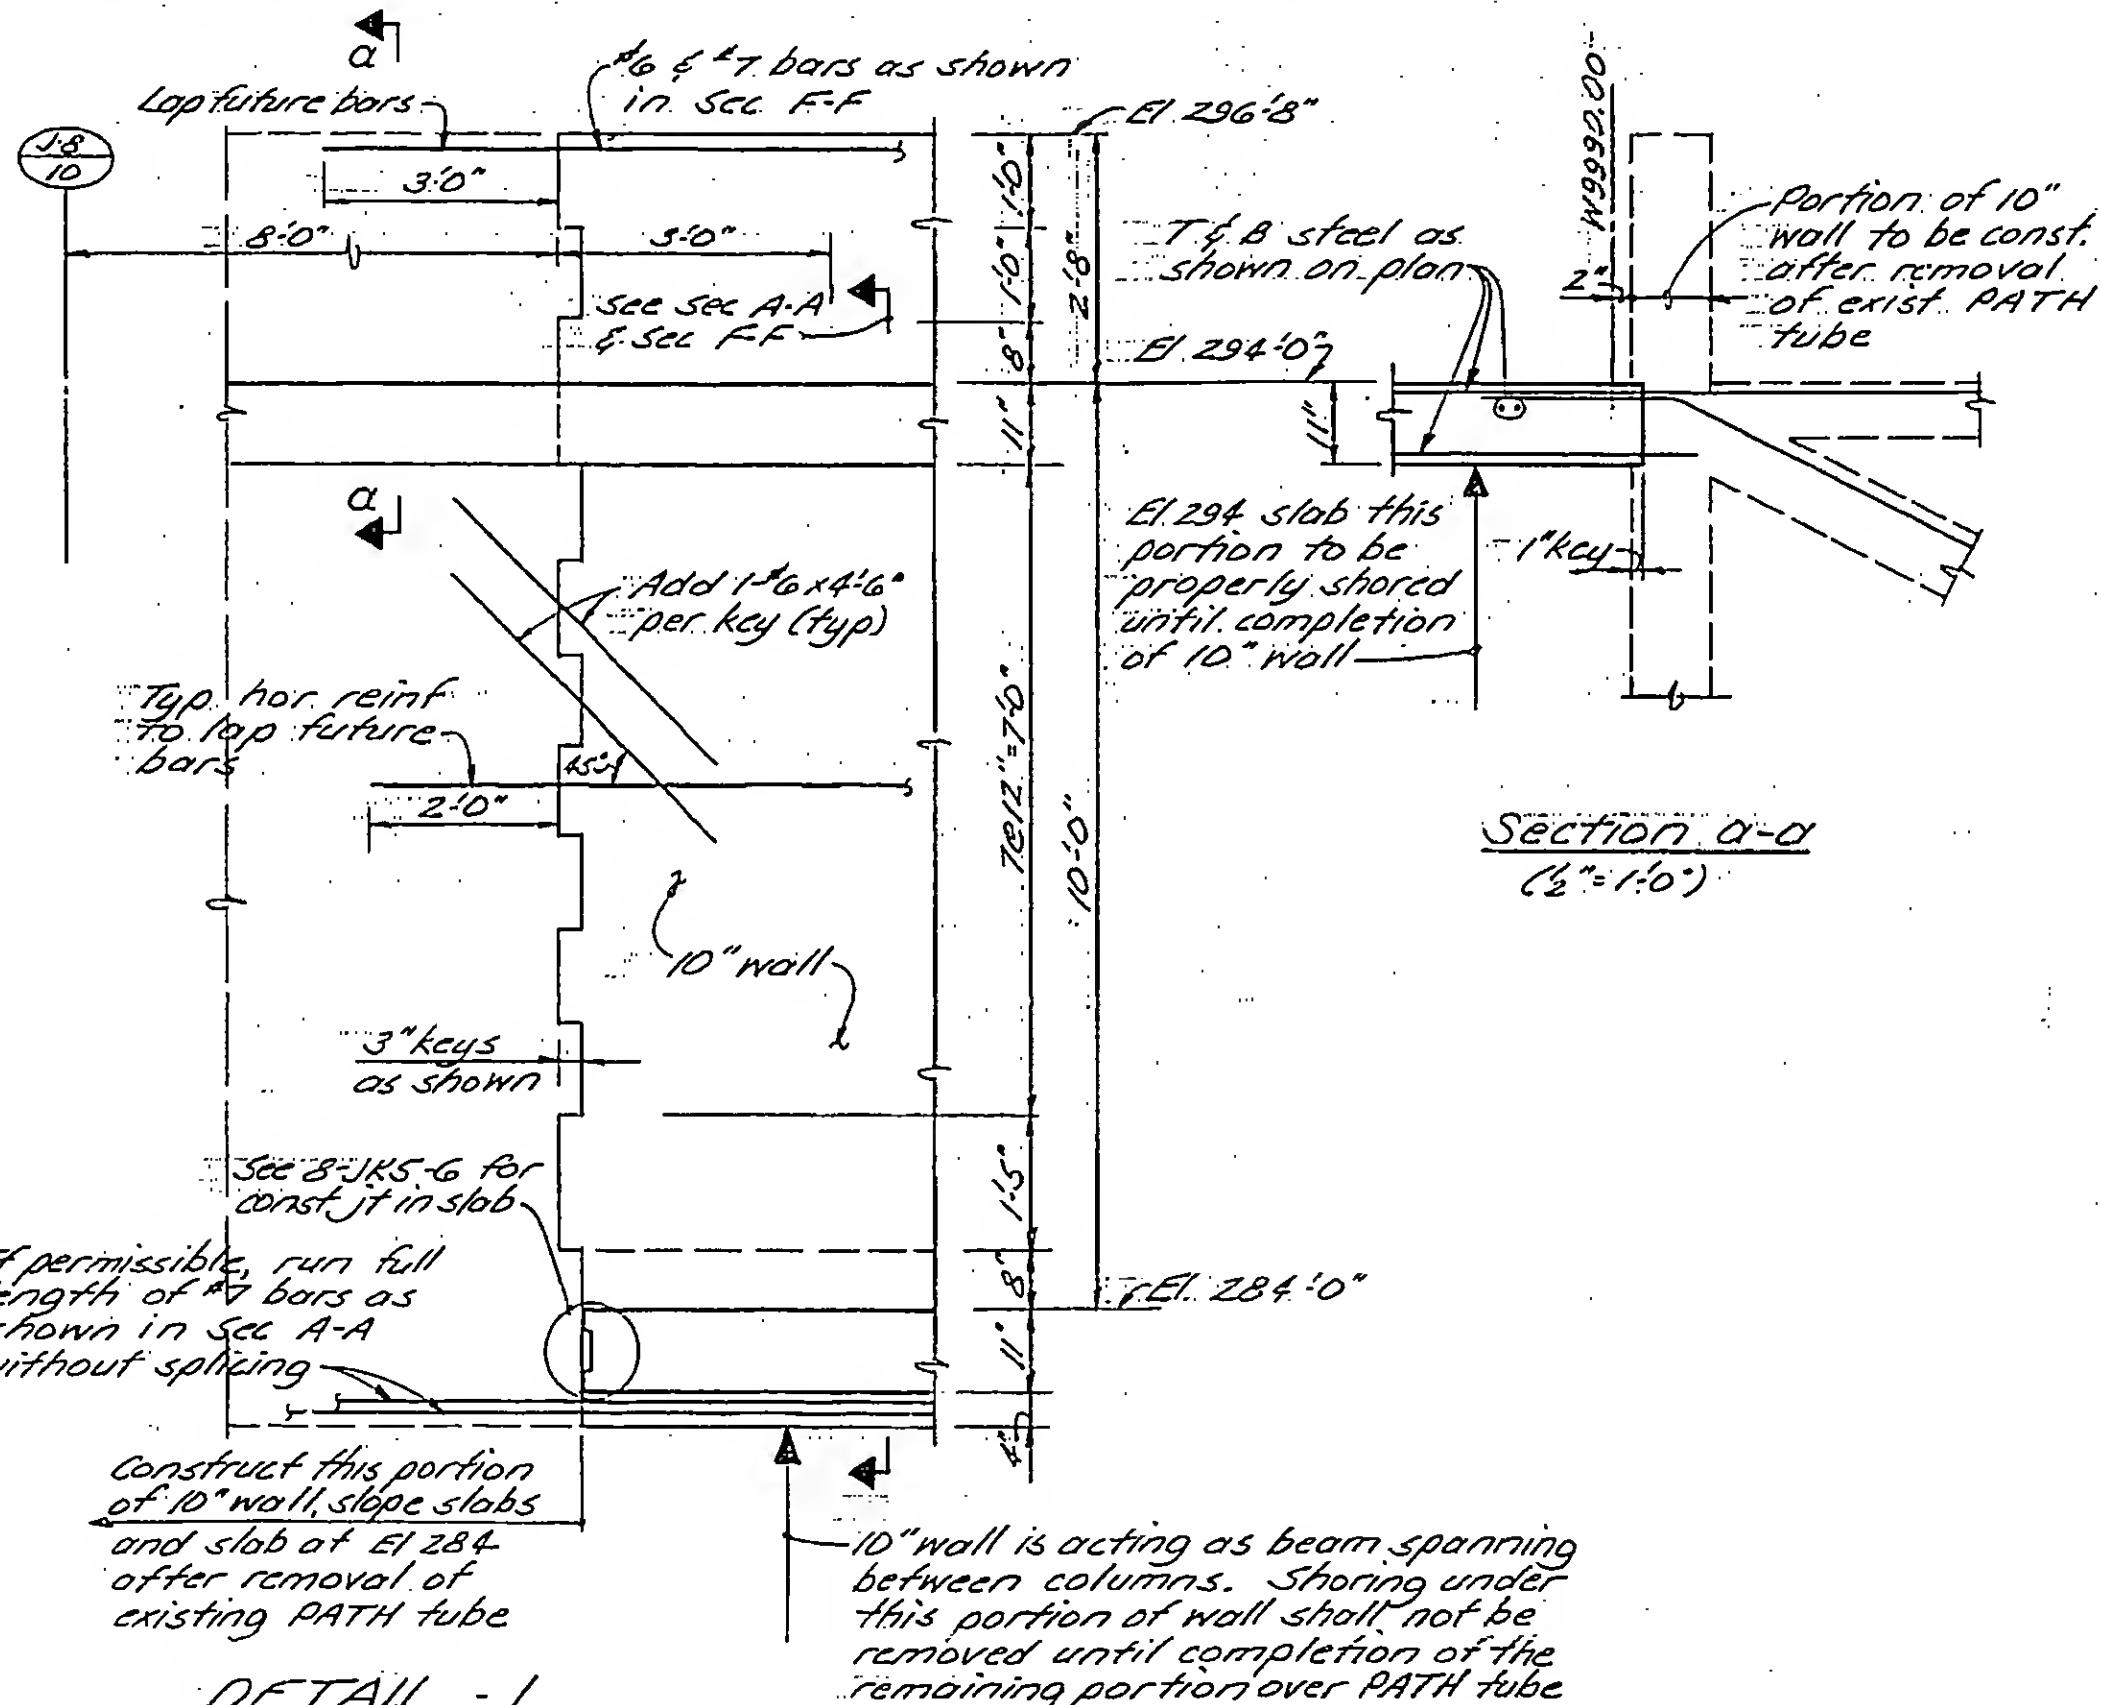 a
#6 & #7 bars as shown
in Sec F-F
Lap future bars
J-8
10
3'-0"
8'-0"
3'-0"
See Sec A-A
& Sec F-F
El 296'-8"
1'-0"
1'-0"
8"
2'-8"
11"
El 294'-0"
T & B steel as
shown on plan
W9992.00
2"
Portion of 10"
wall to be const.
after removal
of exist PATH
tube
11"
El 294 slab this
portion to be
properly shored
until completion
of 10" wall
1" key
a
Add 1-#6 x 4'-6"
per key (typ)
Typ. hor reinf
to lap future
bars
45°
2'-0"
7@12"=7'-0"
10'-0"
Section a-a
(½"=1'-0")
10" wall
3" keys
as shown
1'-5"
See 8-JKS-6 for
const jt in slab
8"
El. 284'-0"
If permissible, run full
length of #7 bars as
shown in Sec A-A
without splicing
11"
4"
Construct this portion
of 10" wall, slope slabs
and slab at El 284
after removal of
existing PATH tube
10" wall is acting as beam spanning
between columns. Shoring under
this portion of wall shall not be
removed until completion of the
remaining portion over PATH tube
DETAIL - 1